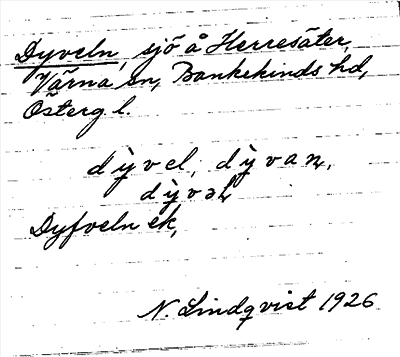 Dyveln, sjö å Herresäter,
Värna sn, Bankekinds hd,
Österg l.
dỳvel, dỳvan,
dỳvəl
Dyfveln ek,
N. Lindqvist 1926